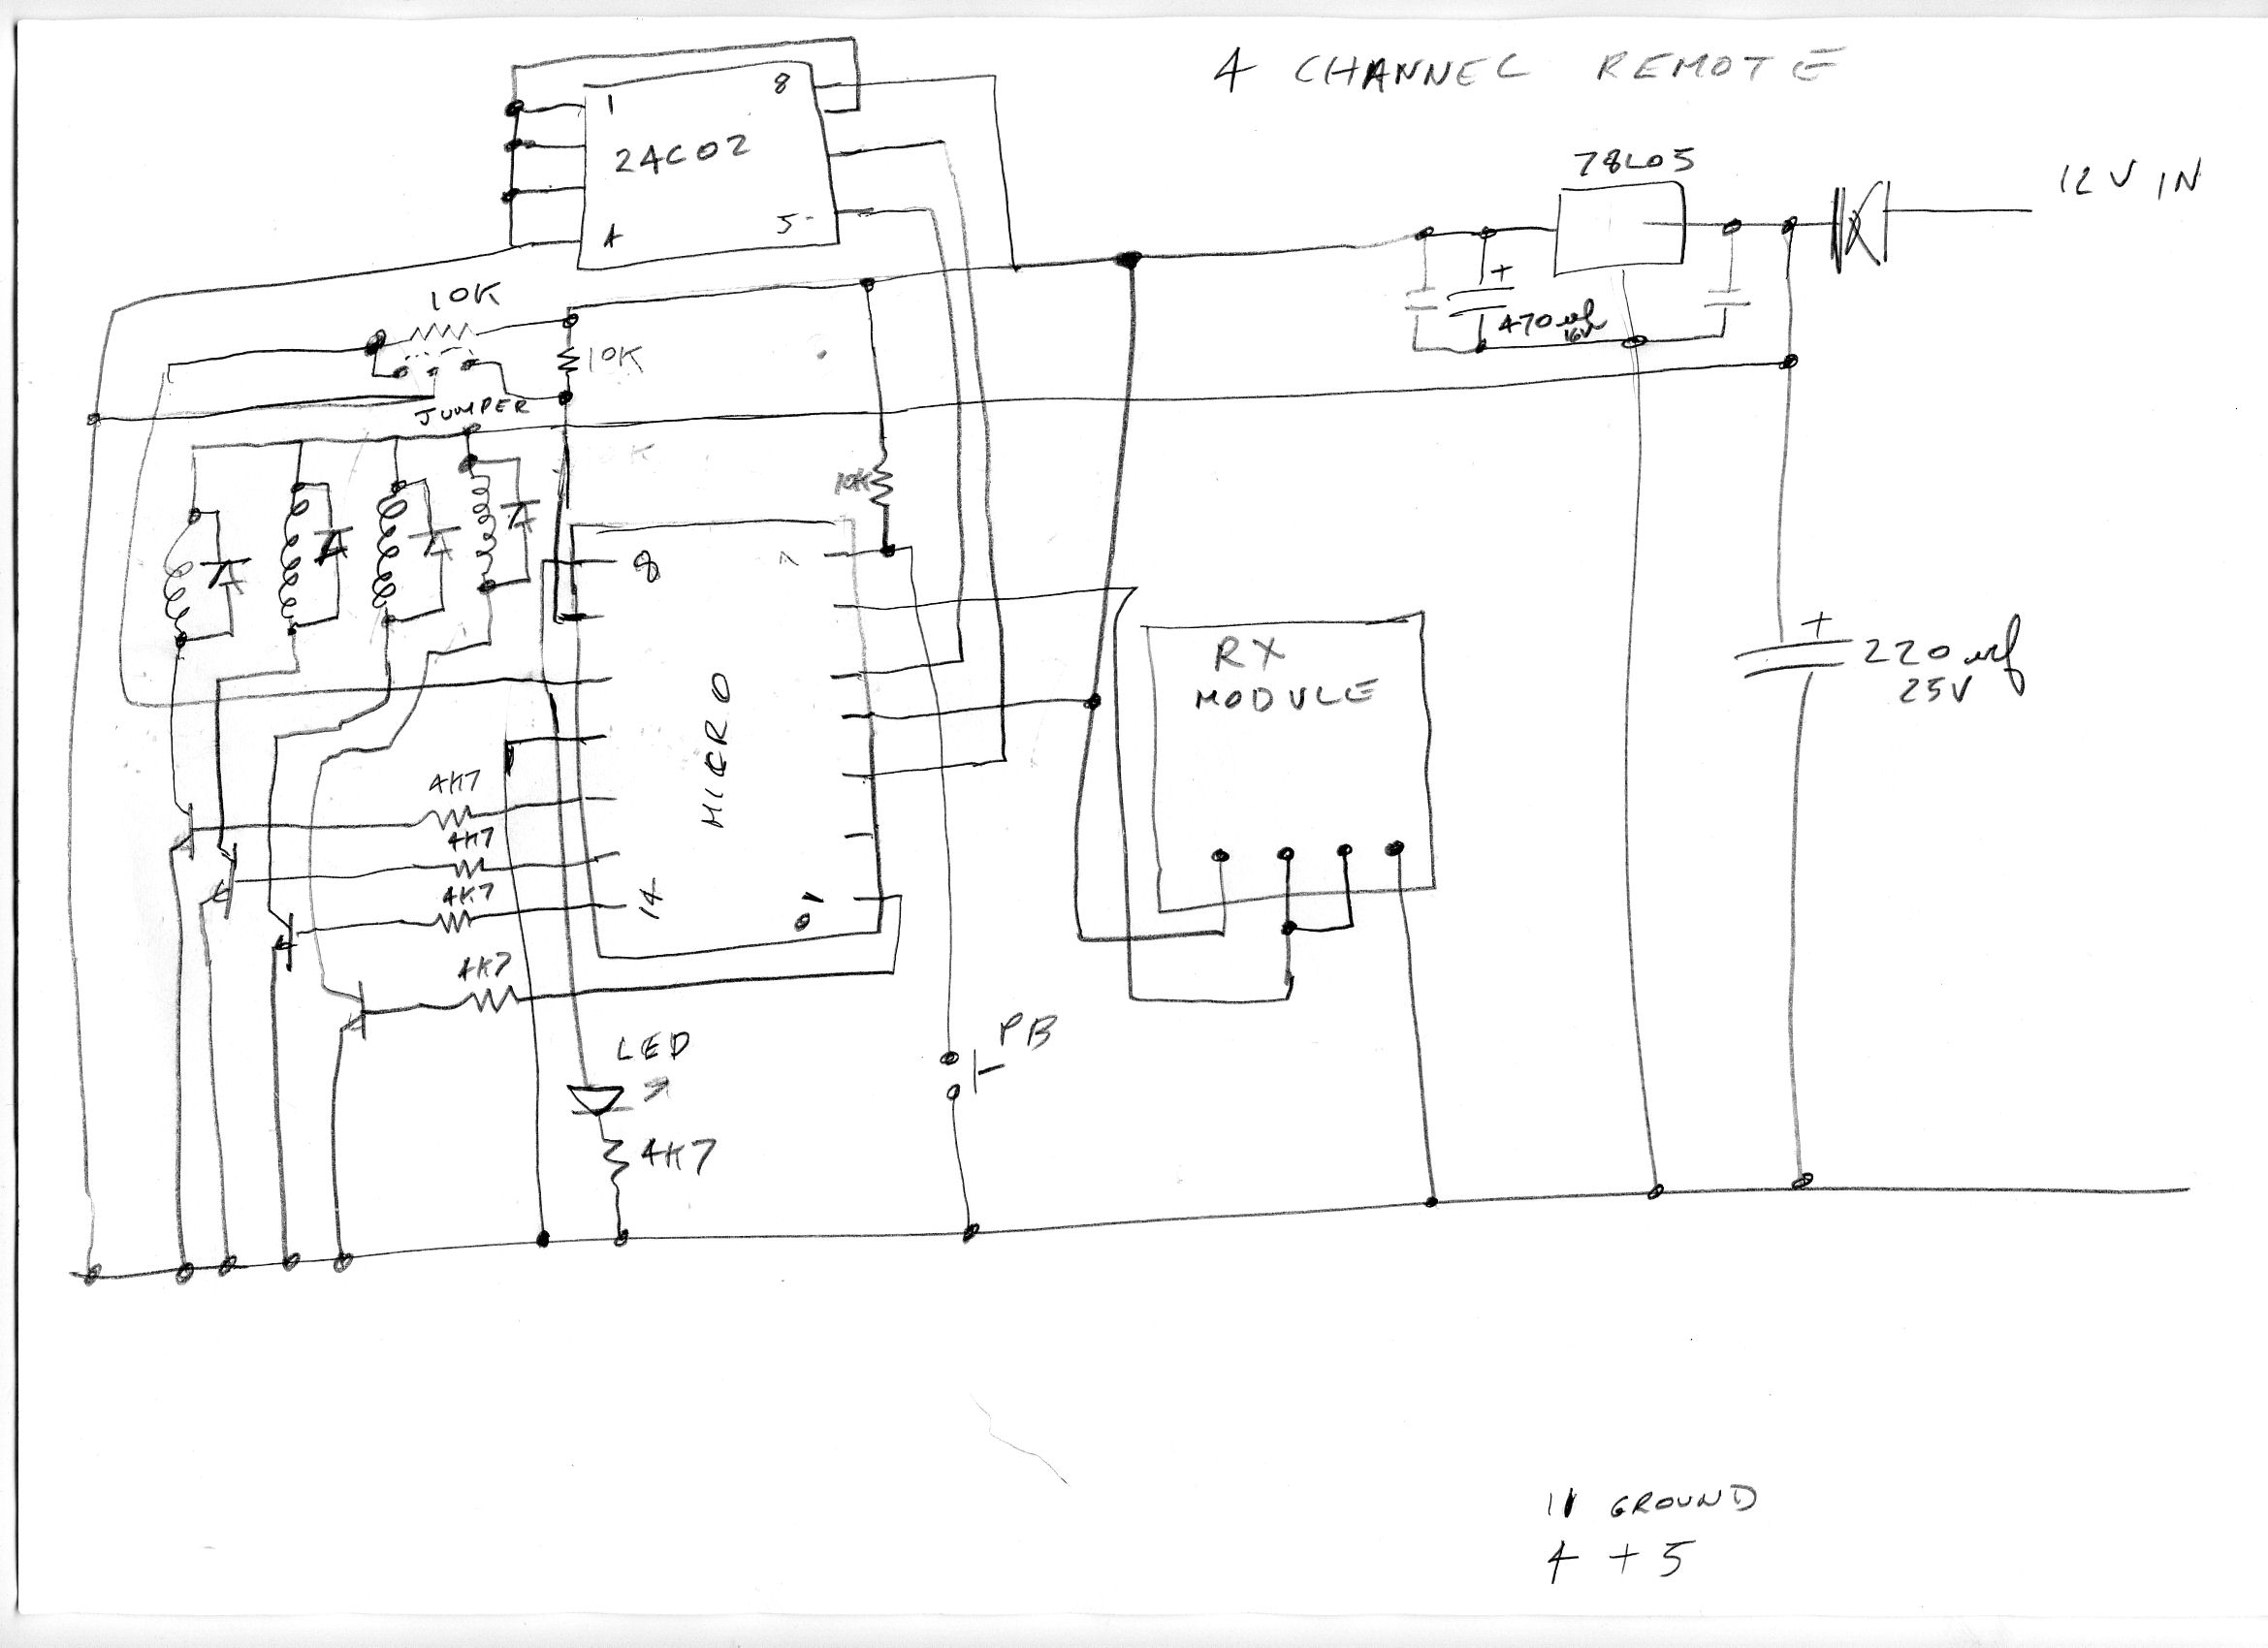 4 CHANNEL REMOTE
8
1
24C02
78L05
12V IN
5
4
10K
+
470uf
16V
10K
JUMPER
10K
8
7
+
RX
220uf
MODULE
25V
MICRO
4K7
4K7
4K7
14
01
4K7
PB
LED
4K7
11 GROUND
4 + 5